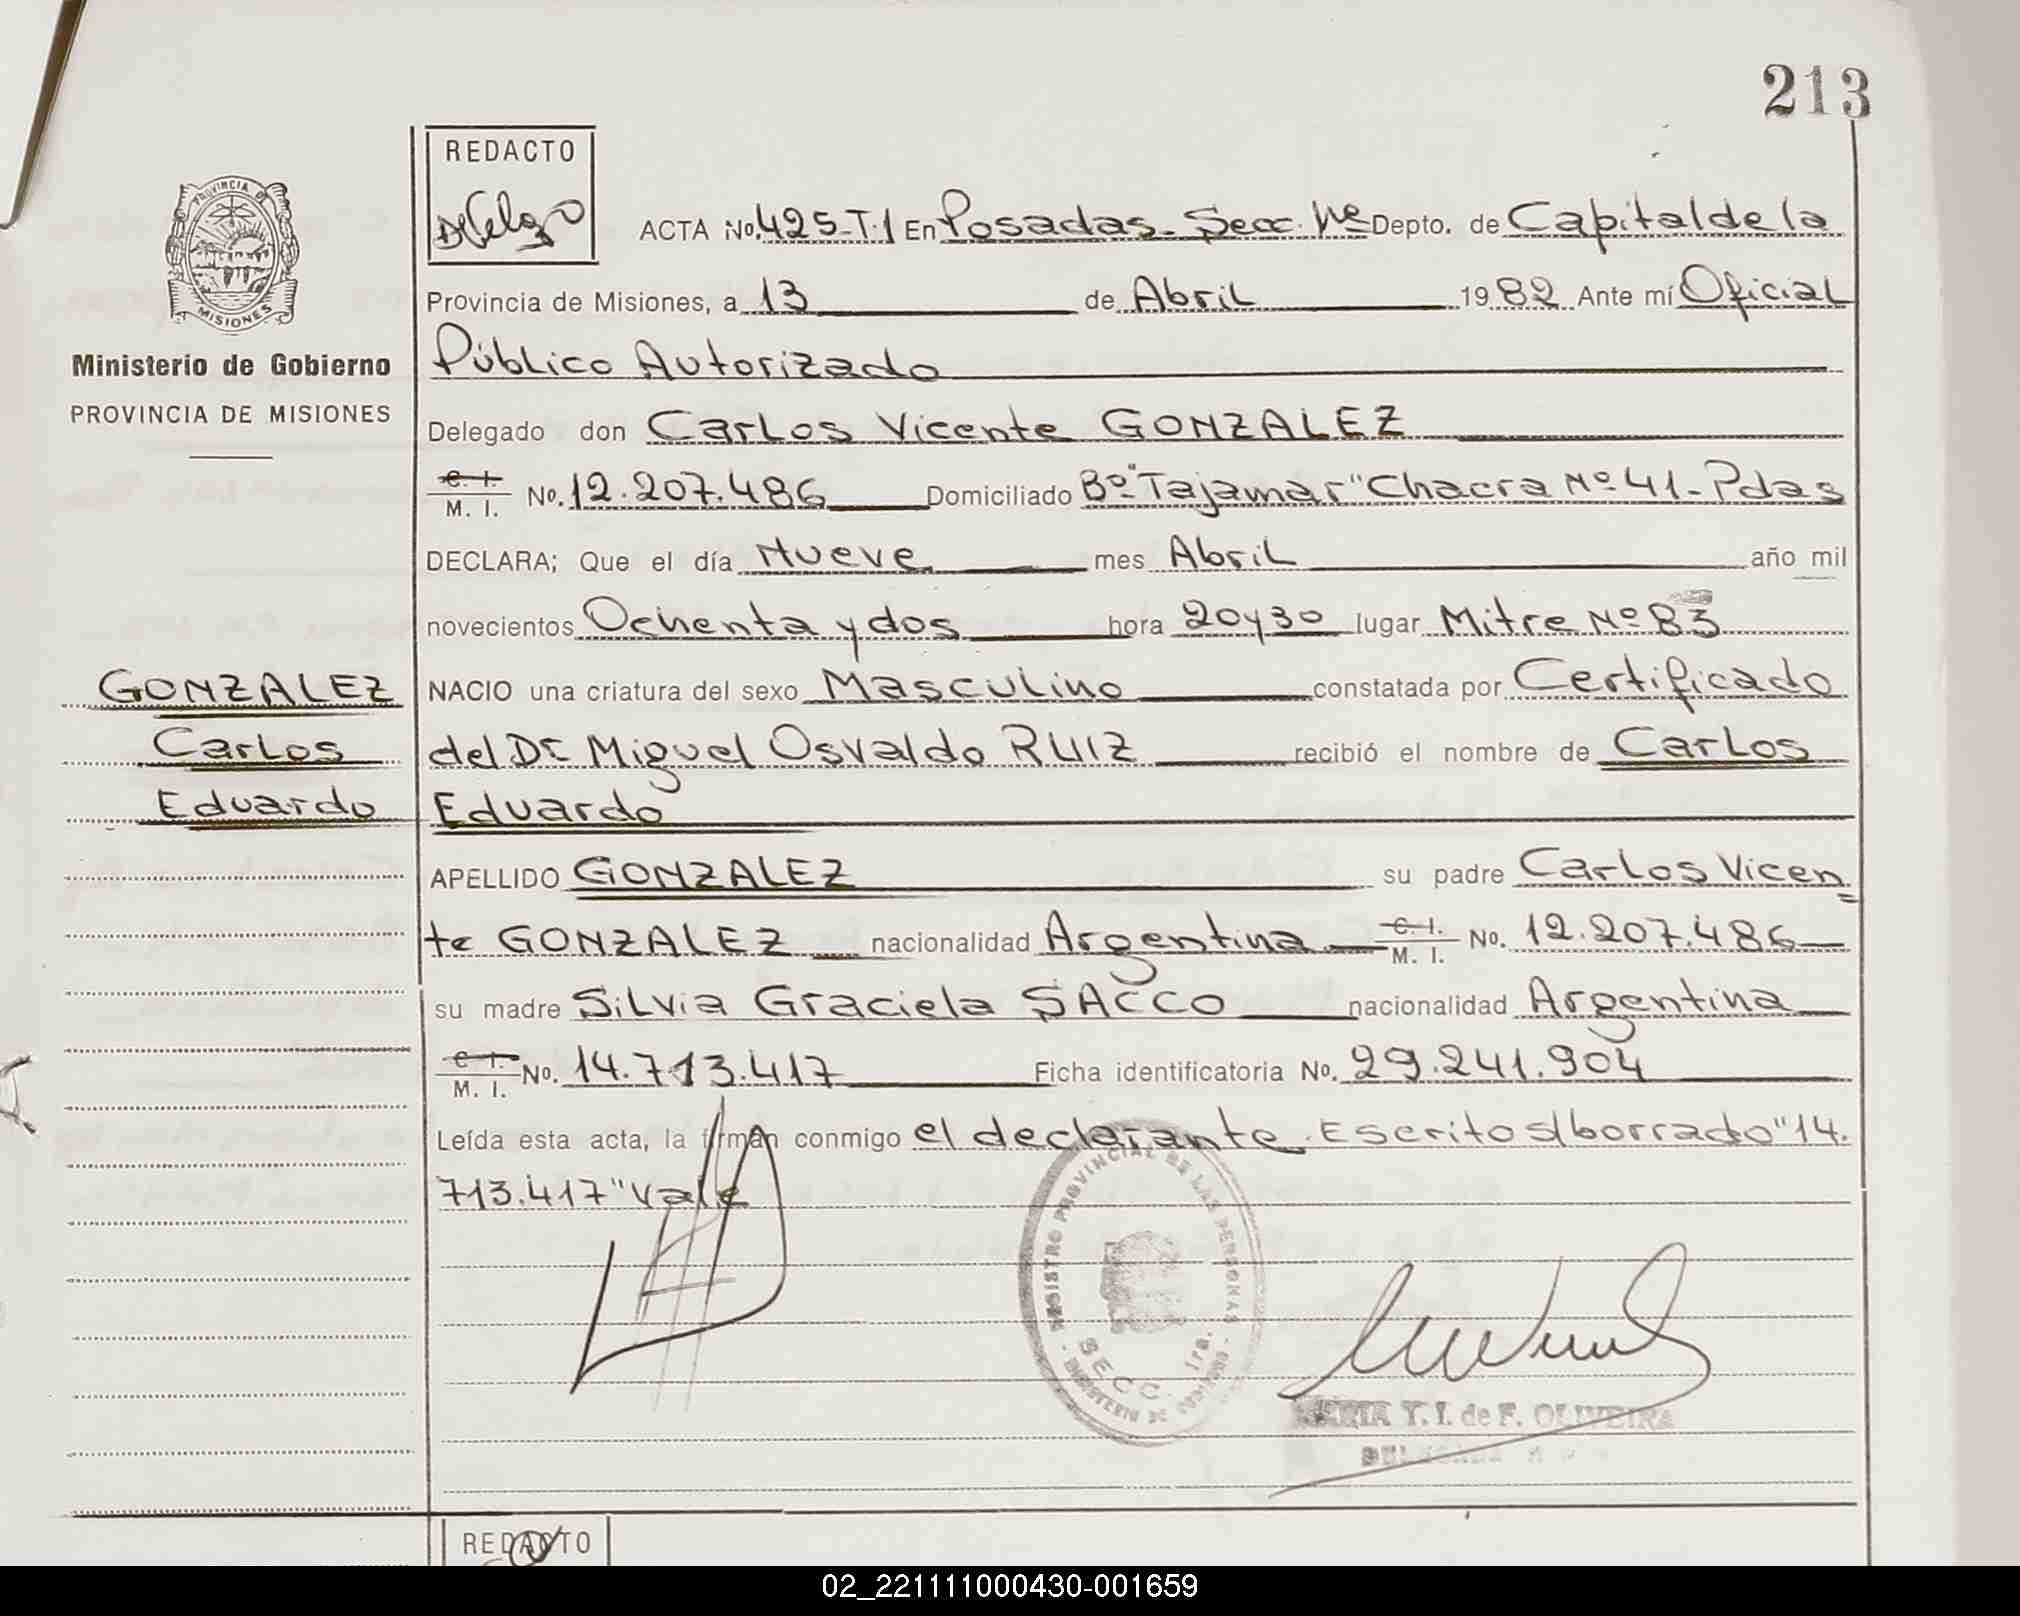 213
REDACTO
Delgo
PROVINCIA DE
MISIONES
Ministerio de Gobierno
PROVINCIA DE MISIONES
ACTA No. 425-T.1 En Posadas - Secc. 1ra Depto. de Capital de la
Provincia de Misiones, a 13 de Abril 1982 Ante mí Oficial
Público Autorizado
Delegado don Carlos Vicente GONZALEZ
C. I. M. I. No. 12.207.486 Domiciliado Bº "Tajamar" Chacra Nº 41 - Pdas
DECLARA; Que el día Nueve mes Abril año mil
novecientos Ochenta y dos hora 20 y 30 lugar Mitre Nº 83
GONZALEZ
Carlos
Eduardo
NACIO una criatura del sexo Masculino constatada por Certificado
del Dr. Miguel Osvaldo RUIZ recibió el nombre de Carlos
Eduardo
APELLIDO GONZALEZ su padre Carlos Vicen=
te GONZALEZ nacionalidad Argentina C. I. M. I. No. 12.207.486
su madre Silvia Graciela SACCO nacionalidad Argentina
C. I. M. I. No. 14.713.417 Ficha identificatoria No. 29.241.904
Leída esta acta, la firman conmigo el declarante. Escrito s/borrado "14.
713.417" Vale
REGISTRO PROVINCIAL DE LAS PERSONAS
SECC. 1ra.
MINISTERIO DE GOBIERNO
MARIA T. I. de F. OLIVEIRA
REDACTO
02_221111000430-001659